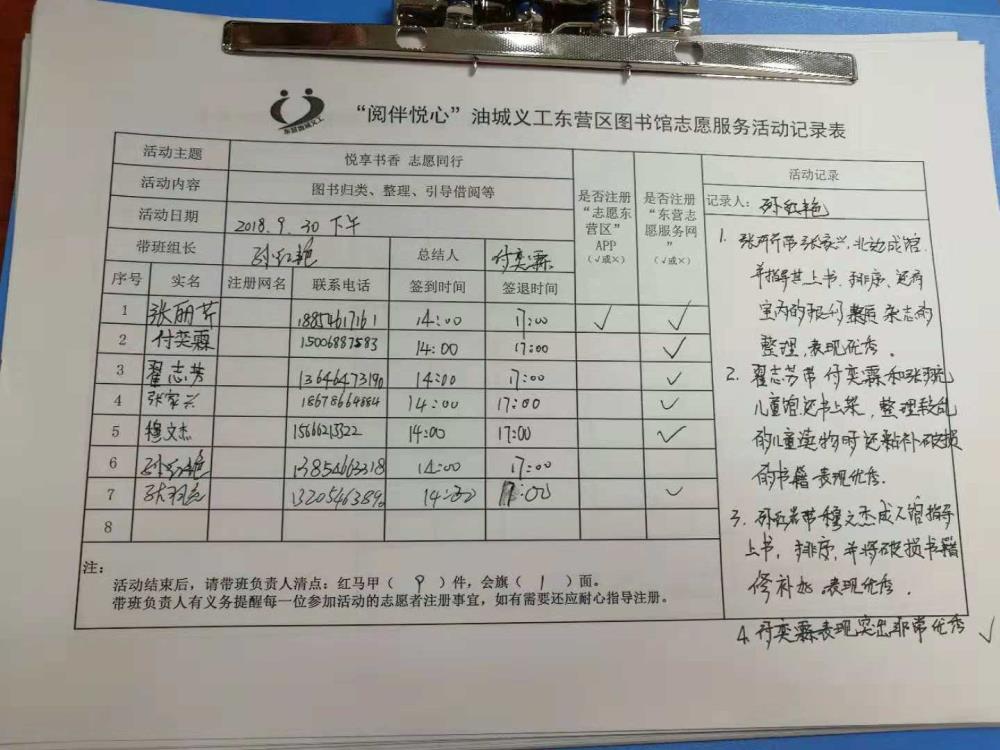 东营油城义工
“阅伴悦心”油城义工东营区图书馆志愿服务活动记录表
活动主题 悦享书香 志愿同行
活动内容 图书归类、整理、引导借阅等
活动日期 2018.9.30 下午
带班组长 孙红艳 总结人 付奕霖
是否注册“志愿东营区”APP（√或×）
是否注册“东营志愿服务网”（√或×）
序号 实名 注册网名 联系电话 签到时间 签退时间
1 张丽芹 18854617161 14:00 17:00 √ √
2 付奕霖 15006887583 14:00 17:00 √
3 翟志芳 13646473190 14:00 17:00 √
4 张家兴 18678664884 14:00 17:00 √
5 穆文杰 15666213322 14:00 17:00 √
6 孙红艳 13854663318 14:00 17:00
7 14:00 17:00 √
8
注：
活动结束后，请带班负责人清点：红马甲（ 9 ）件，会旗（ 1 ）面。
带班负责人有义务提醒每一位参加活动的志愿者注册事宜，如有需要还应耐心指导注册。
活动记录
记录人：孙红艳
1. 张丽芹带张家兴，北边成馆.
并指导其上书、排序，还有
室内的报刊 杂志的
整理，表现优秀。
2. 翟志芳带付奕霖和张
儿童馆还书上架，整理较乱
的儿童读物时还粘补破损
的书籍 表现优秀.
3. 孙红艳带穆文杰成人馆指导
上书，排序，并将破损书籍
修补好 表现优秀.
4. 付奕霖表现突出非常优秀 √